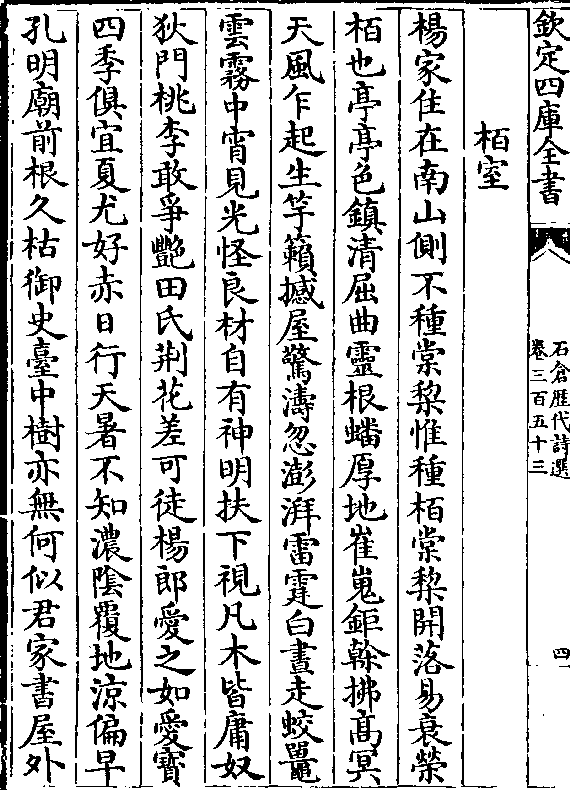 欽定四庫全書
石倉歷代詩選
卷三百五十三
四
栢室
楊家住在南山側不種棠棃惟種栢棠棃開落易衰榮
栢也亭亭色鎮清屈曲靈根蟠厚地崔嵬鉅榦拂髙冥
天風乍起生竽籟撼屋驚濤忽澎湃雷霆白晝走蛟鼉
雲霧中宵見光怪良材自有神明扶下視凡木皆庸奴
狄門桃李敢爭艶田氏荆花差可徒楊郎愛之如愛寳
四季俱宜夏尤好赤日行天暑不知濃陰覆地涼偏早
孔明廟前根久枯御史臺中樹亦無何似君家書屋外